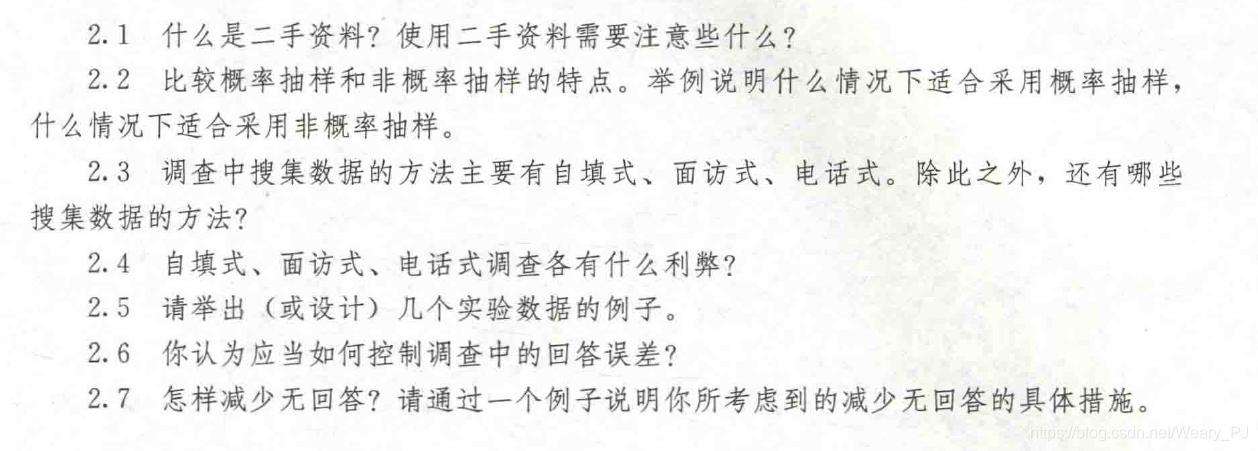 2.1 什么是二手资料？使用二手资料需要注意些什么？
2.2 比较概率抽样和非概率抽样的特点。举例说明什么情况下适合采用概率抽样，
什么情况下适合采用非概率抽样。
2.3 调查中搜集数据的方法主要有自填式、面访式、电话式。除此之外，还有哪些
搜集数据的方法？
2.4 自填式、面访式、电话式调查各有什么利弊？
2.5 请举出（或设计）几个实验数据的例子。
2.6 你认为应当如何控制调查中的回答误差？
2.7 怎样减少无回答？请通过一个例子说明你所考虑到的减少无回答的具体措施。
https://blog.csdn.net/Weary_PJ